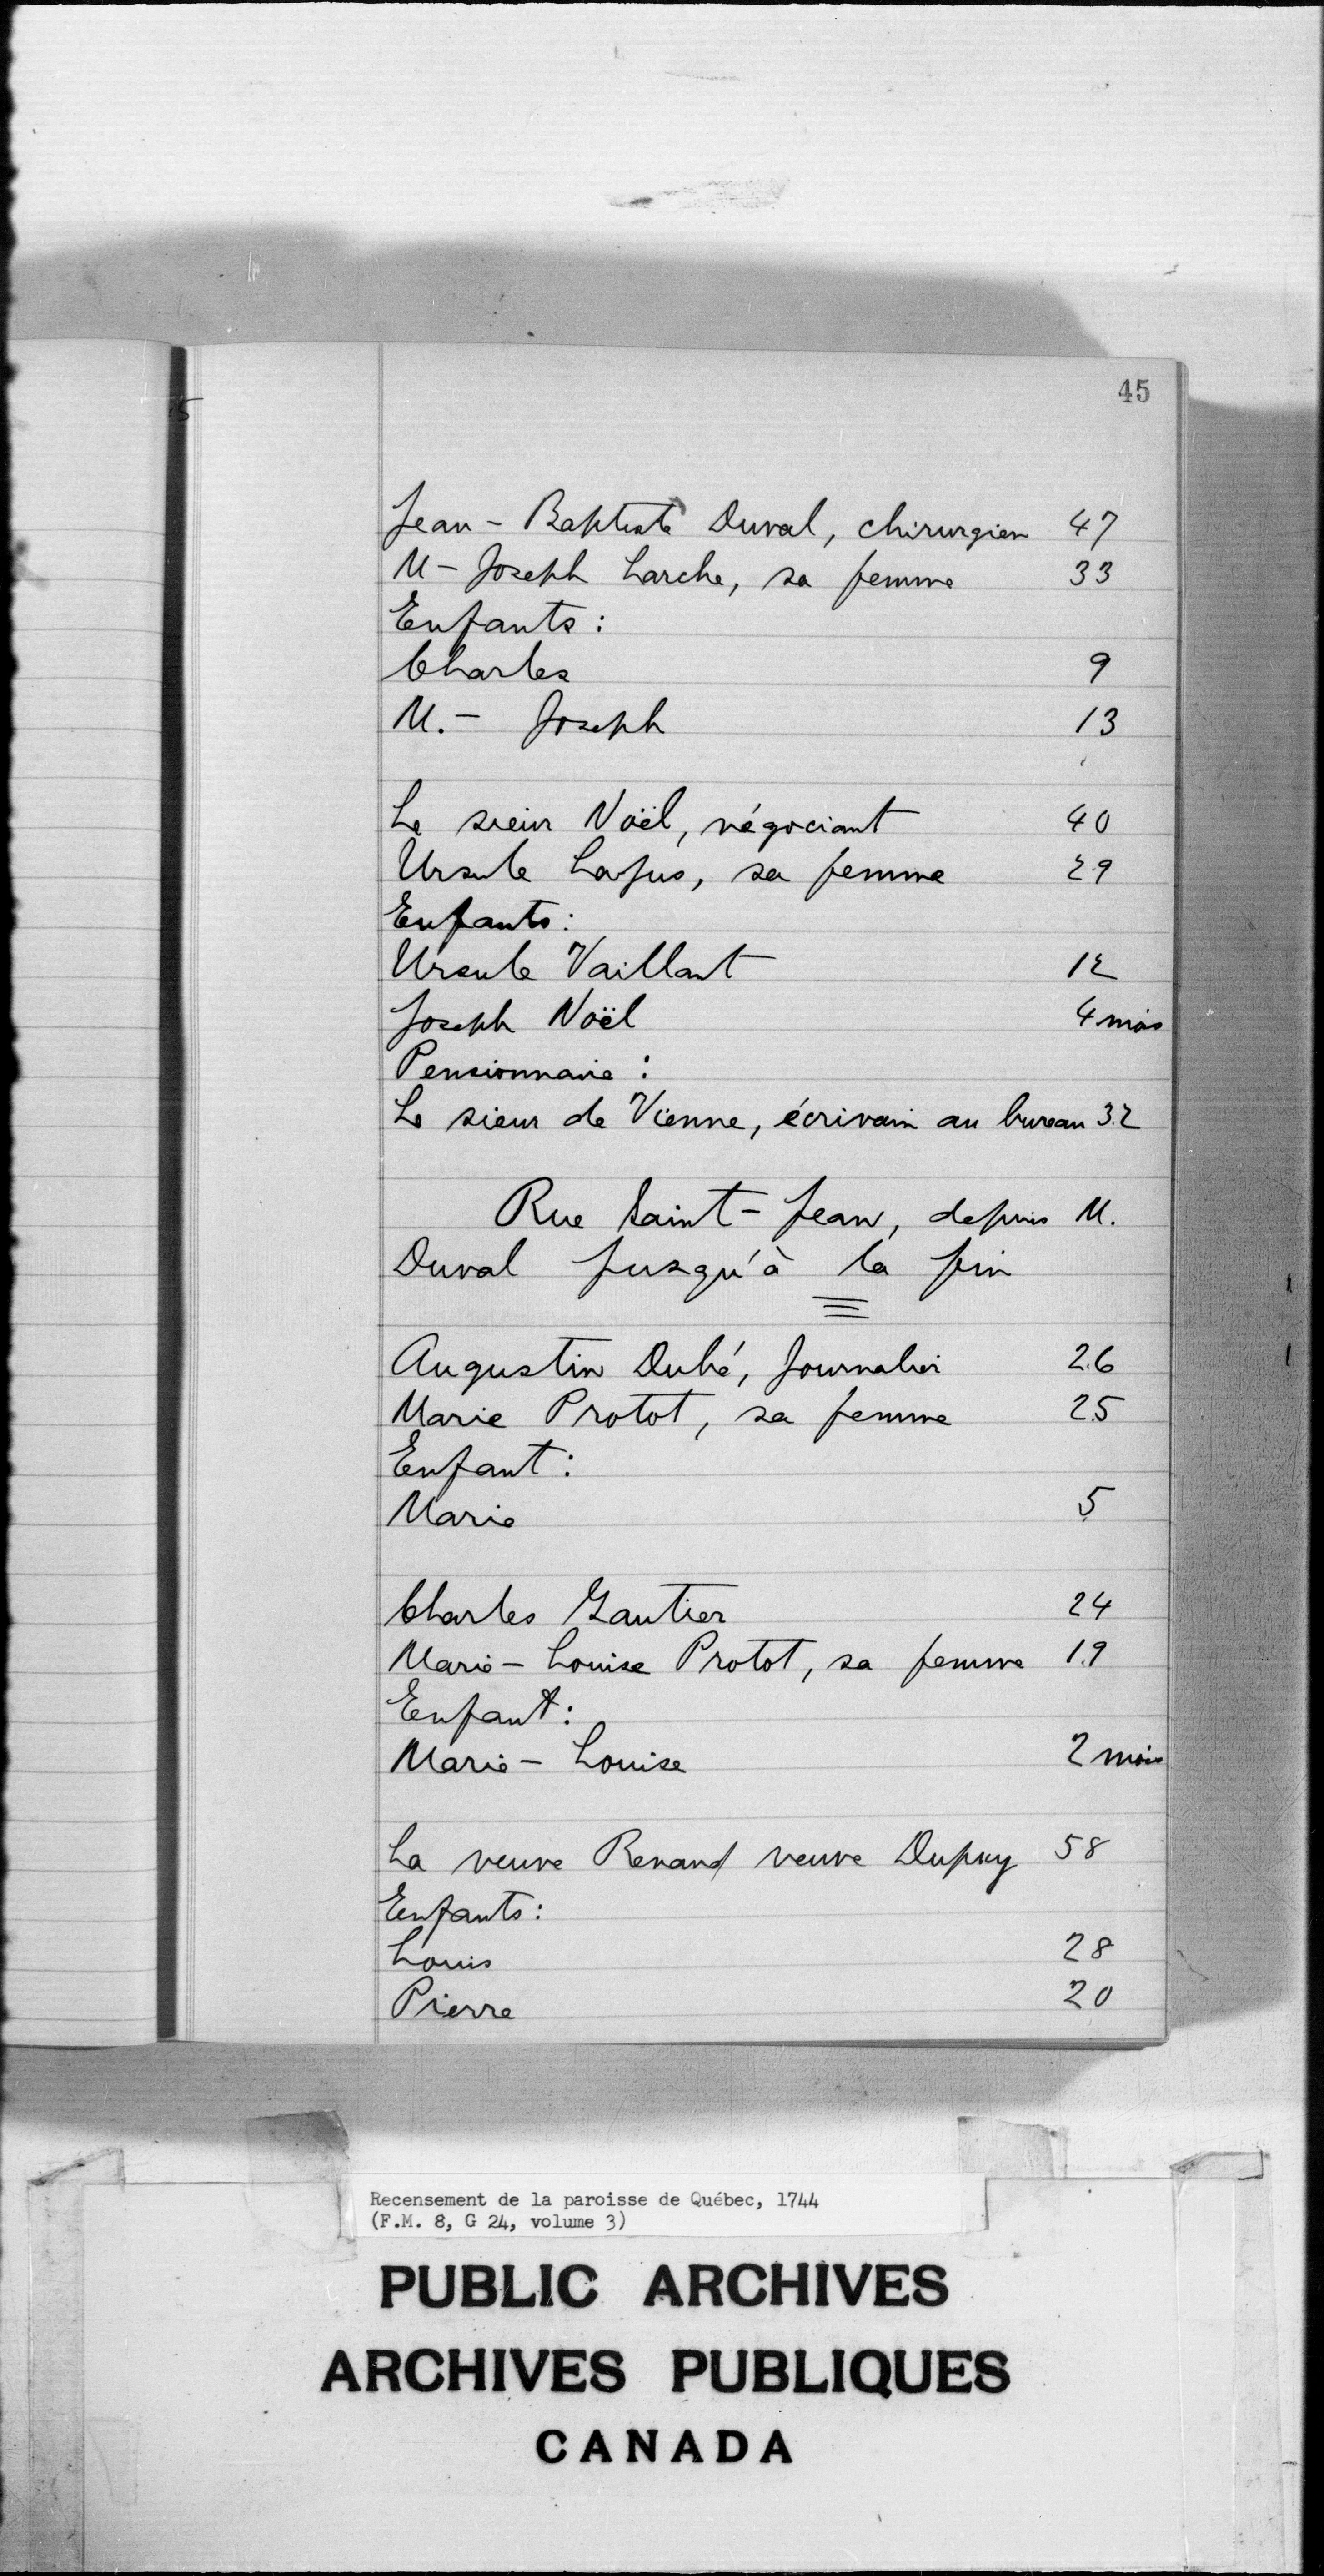 45
Jean-Baptiste Duval, chirurgien 47
M-Joseph Larche, sa femme 33
Enfants:
Charles 9
M.- Joseph 13
Le sieur Noël, négociant 40
Ursule Lajus, sa femme 29
Enfants:
Ursule Vaillant 12
Joseph Noël 4 mois
Pensionnaire:
Le sieur de Vienne, écrivain au bureau 32
Rue Saint-Jean, depuis M.
Duval jusqu'à la fin
Augustin Dubé, journalier 26
Marie Protot, sa femme 25
Enfant:
Marie 5
Charles Gautier 24
Marie-Louise Protot, sa femme 19
Enfant:
Marie-Louise 2 mois
La veuve Renaud veuve Dupuy 58
Enfants:
Louis 28
Pierre 20
Recensement de la paroisse de Québec, 1744
(F.M. 8, G 24, volume 3)
PUBLIC ARCHIVES
ARCHIVES PUBLIQUES
CANADA